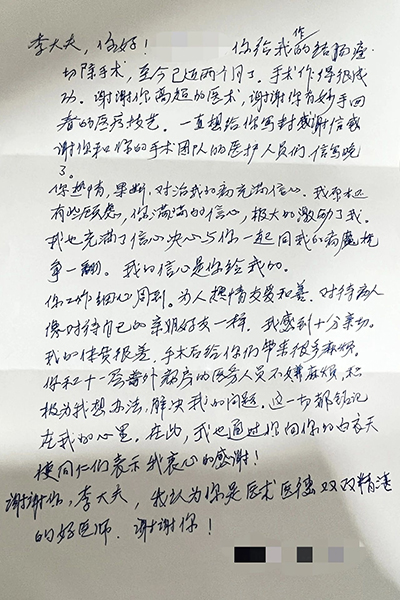 李大夫，你好！ 你给我作的结肠癌
切除手术，至今已近两个月了。手术作得很成
功。谢谢你高超的医术，谢谢你有妙手回
春的医疗技艺。一直想给你写封感谢信感
谢你和你的手术团队的医护人员们信写晚
了。
你热情，果断，对治我的病充满信心。我本也
有些顾虑，你满满的信心，极大的激励了我。
我也充满了信心决心与你一起同我的病魔抗
争一翻。我的信心是你给我的。
你工作细心周到。为人热情友爱和善。对待病人
像对待自己的亲朋好友一样。我感到十分亲切。
我的体质很差，手术后给你们带来很多麻烦。
你和十一层普外病房的医务人员不嫌麻烦，积
极为我想办法，解决我的问题。这一切都铭记
在我的心里。在此，我也通过你向你的白衣天
使同仁们表示我衷心的感谢！
谢谢你，李大夫，我认为你是医术医德双双精湛
的好医师。谢谢你！